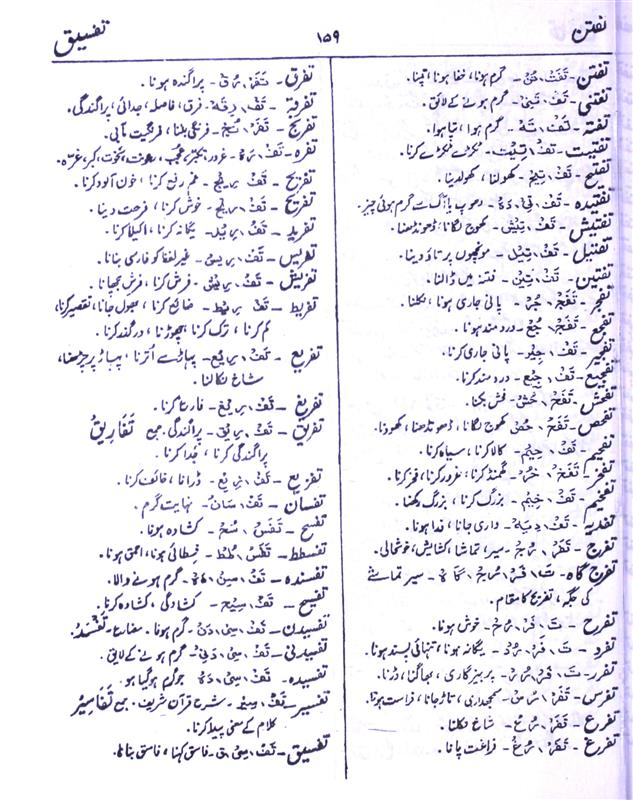 تفتن
۱۵۹
تفسیق
تفتن - تَفَت، تُن - گرم ہونا، خفا ہونا، تپنا۔
تفتنی - تَفْ، تَنِی - گرم ہونے کے لائق۔
تفتہ - تَفْ، تَہ - گرم ہوا، تپا ہوا۔
تفتیت - تَفْ، تِیْت - ٹکڑے ٹکڑے کرنا۔
تفتیح - تَفْ، تِیْح - کھولنا، کھولدینا۔
تفتیدہ - تَفْ، تِی، دَہ - دھوپ یا آگ سے گرم ہوئی چیز۔
تفتیش - تَفْ، تِیْش - کھوج لگانا، ڈھونڈھنا۔
تفتیل - تَفْ، تِیْل - مونچھوں پر تاؤ دینا۔
تفتین - تَفْ، تِیْن - فتنہ میں ڈالنا۔
تفجر - تَفَجْ، جُر - پانی جاری ہونا، نکلنا۔
تفجع - تَفَجْ، جُع - درد مند ہونا۔
تفجیر - تَفْ، جِیْر - پانی جاری کرنا۔
تفجیع - تَفْ، جِیْع - درد مند کرنا۔
تفحش - تَفَحْ، حُش - فحش بکنا۔
تفحص - تَفَحْ، حُص - کھوج لگانا، ڈھونڈھنا، کھودنا۔
تفحیم - تَفْ، حِیْم - کالا کرنا، سیاہ کرنا۔
تفخر - تَفَخْ، خُر - گھمنڈ کرنا، غرور کرنا، فخر کرنا۔
تفخیم - تَفْ، خِیْم - بزرگ کرنا، بزرگ رکھنا۔
تفدیہ - تَفْ، دِیَہ - واری جانا، فدا ہونا۔
تفرج - تَفَرْ، رُج - سیر، تماشا، کشایش، خوشحالی۔
تفرج گاہ - تَ، فَرْ، رُج، گاہ - سیر تماشے
کی جگہ، تفریح کا مقام۔
تفرح - تَ، فَرْ، رُح - خوش ہونا۔
تفرد - تَ، فَرْ، رُد - یگانہ ہونا، تنہائی پسند ہونا۔
تفرر - تَفَرْ، رُر - پرہیزگاری، بھاگنا، ڈرنا۔
تفرس - تَفَرْ، رُس - سمجھداری، تاڑ جانا، فراست ہونا۔
تفرع - تَفَرْ، رُع - شاخ نکلنا۔
تفرغ - تَفَرْ، رُغ - فراغت پانا۔
تفرق - تَفَرْ، رُق - پراگندہ ہونا۔
تفرقہ - تَفْ، رِقَہ - فرق، فاصلہ، جدائی، پراگندگی۔
تفرنج - تَفَرْ، نُج - فرنگی بننا، فرنگیت مآبی۔
تفرہ - تَفْ، رَہ - غرور، تکبر، عجب، رعونت، نخوت، کبر، غرّہ۔
تفریح - تَفْ، رِیْح - غم رفع کرنا، خون آلود کرنا۔
تفریح - تَفْ، رِیْح - خوش کرنا، فرحت دینا۔
تفرید - تَفْ، رِیْد - یگانہ کرنا، اکیلا کرنا۔
تفریس - تَفْ، رِیْس - غیر لفظ کو فارسی بنانا۔
تفریش - تَفْ، رِیْش - فرش کرنا، فرش بچھانا۔
تفریط - تَفْ، رِیْط - ضائع کرنا، بھول جانا، تقصیر کرنا،
کم کرنا، ترک کرنا، چھوڑنا، درگذر کرنا۔
تفریع - تَفْ، رِیْع - پہاڑ سے اترنا، پہاڑ پر چڑھنا،
شاخ نکالنا۔
تفریغ - تَفْ، رِیْغ - فارغ کرنا۔
تفریق - تَفْ، رِیْق - پراگندگی۔ جمع تَفَارِیْق
پراگندگی کرنا، جُدا کرنا۔
تفزیع - تَفْ، زِیْع - ڈرانا، خائف کرنا۔
تفسان - تَفْ، سَان - نہایت گرم۔
تفسح - تَفَسْ، سُح - کشادہ ہونا۔
تفسطط - تَفَسْ، طُط - خبطائی ہونا، احمق ہونا۔
تفسندہ - تَفْ، سَنْ، دَہ - گرم ہونے والا۔
تفسیح - تَفْ، سِیْح - کشادگی، کشادہ کرنا۔
تفسیدن - تَفْ، سِی، دَن - گرم ہونا۔ مضارع - تَفْسَد۔
تفسیدنی - تَفْ، سِی، دَنِی - گرم ہونے کے لائق۔
تفسیدہ - تَفْ، سِی، دَہ - جو گرم ہوگیا ہو۔
تفسیر - تَفْ، سِیْر - شرح قرآن شریف۔ جمع تَفَاسِیْر
کلام کے معنی پیدا کرنا۔
تفسیق - تَفْ، سِیْق - فاسق کہنا، فاسق بنانا۔